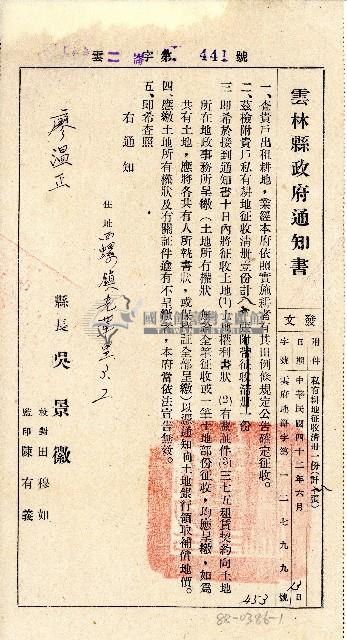 雲二崙字第 441 號
雲林縣政府通知書
發文
附件 私有耕地征收清冊一份(計 頁)
日期 中華民國四十二年六月13日
字號 雲府地籍字第一一二七九九號
一、查貴戶出租耕地，業經本府依照實施耕者有其田條例規定公告確定征收。
二、茲檢附貴戶私有耕地征收清冊壹份
三、即希於接到通知書十日內將征收土地(1)土地權利書狀(2)有關証件(3)三七五租賃契約向土地
所在地政事務所呈繳(土地所有權狀 全筆征收或一筆土地部份征收，均應呈繳，如為
共有土地，應將各共有人所執書狀，或保持証全部呈繳)以憑通知向土地銀行領取補償地價。
四、應繳土地所有權狀及有關証件逾有不呈繳者，本府當依法宣告無效。
五、即希查照
右通知
廖溫正
住址 西螺鎮
縣長 吳景徽
校對 田穆如
監印 陳有義
453
88-0386-1